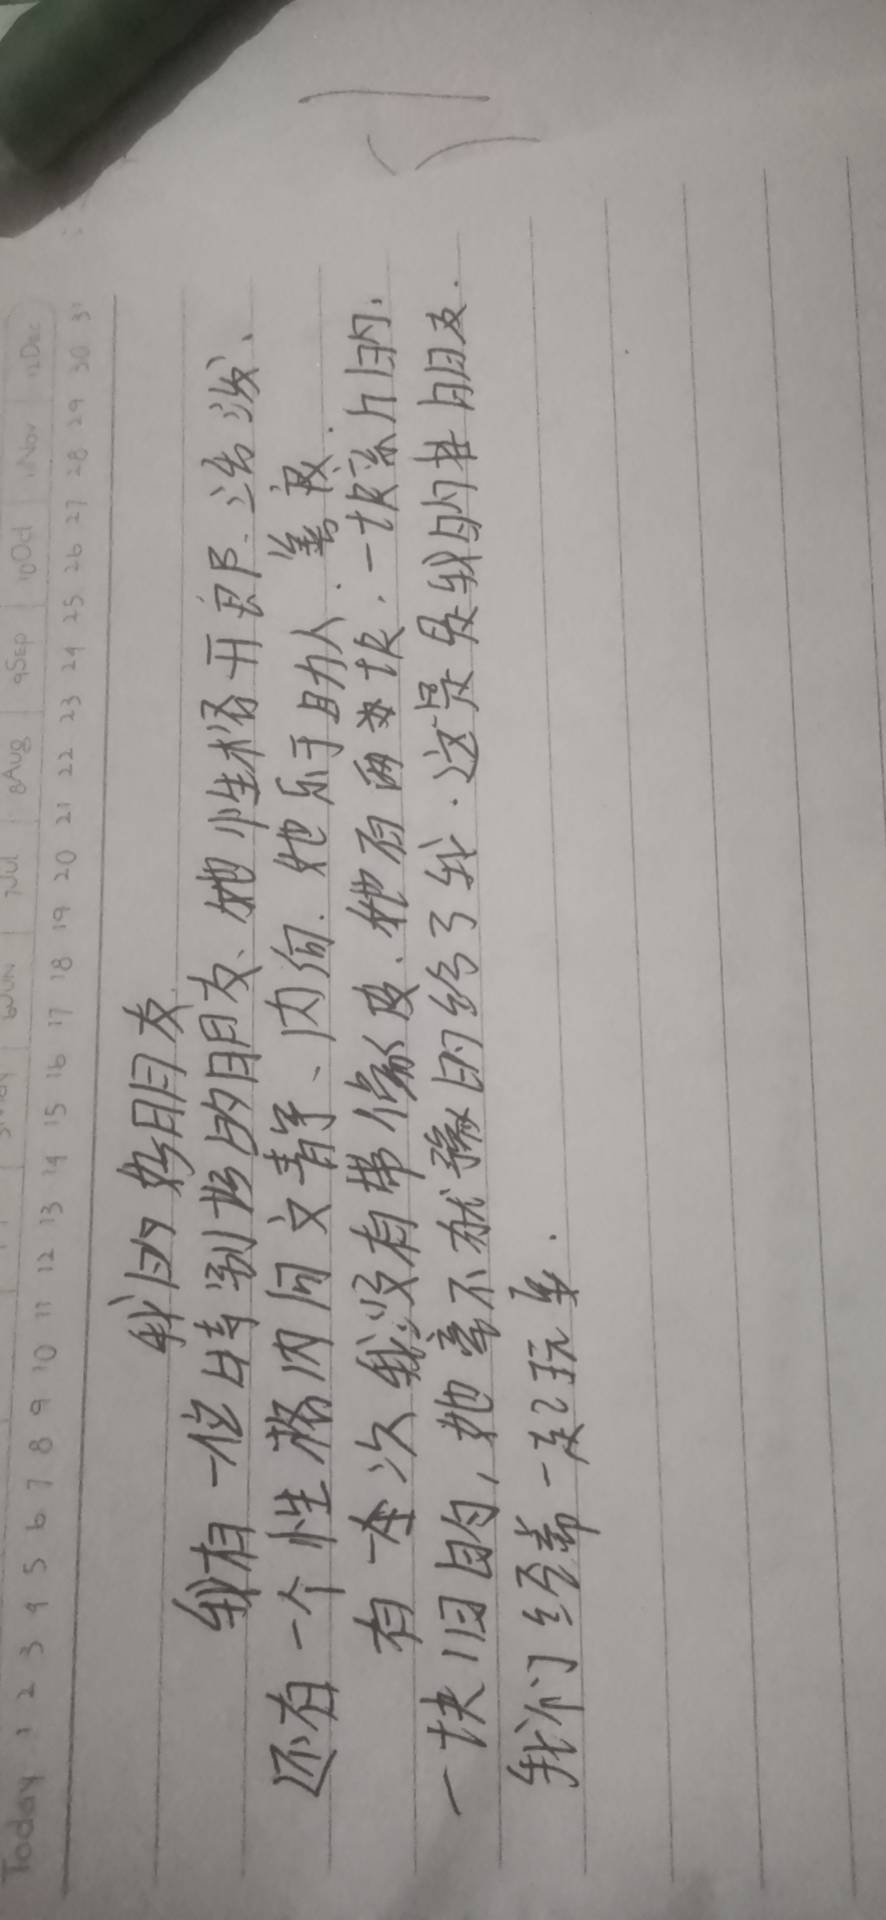 我的好朋友
我有一位特别好的朋友、她性格开朗、活泼、
还有一个性格内向文静、内向.她乐于助人.善良.
有一次我没有带橡皮、她有两块.一块新的.
一块旧的,她毫不犹豫的给了我.这是我的好朋友.
我们经常一起玩耍.
Today 1 2 3 4 5 6 7 8 9 10 11 12 13 14 15 16 17 18 19 20 21 22 23 24 25 26 27 28 29 30 31
7Jul 8Aug 9Sep 10Oct 11Nov 12Dec